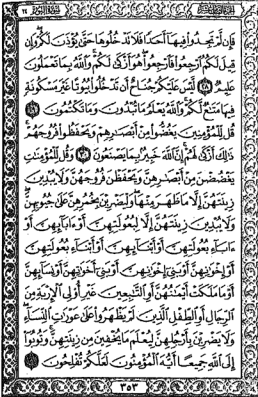 فَإِن لَّمْ تَجِدُوا فِيهَا أَحَدًا فَلَا تَدْخُلُوهَا حَتَّىٰ يُؤْذَنَ لَكُمْ وَإِن
قِيلَ لَكُمُ ارْجِعُوا فَارْجِعُوا هُوَ أَزْكَىٰ لَكُمْ وَاللَّهُ بِمَا تَعْمَلُونَ
عَلِيمٌ ٢٨ لَّيْسَ عَلَيْكُمْ جُنَاحٌ أَن تَدْخُلُوا بُيُوتًا غَيْرَ مَسْكُونَةٍ
فِيهَا مَتَاعٌ لَّكُمْ وَاللَّهُ يَعْلَمُ مَا تُبْدُونَ وَمَا تَكْتُمُونَ ٢٩
قُل لِّلْمُؤْمِنِينَ يَغُضُّوا مِنْ أَبْصَارِهِمْ وَيَحْفَظُوا فُرُوجَهُمْ
ذَٰلِكَ أَزْكَىٰ لَهُمْ إِنَّ اللَّهَ خَبِيرٌ بِمَا يَصْنَعُونَ ٣٠ وَقُل لِّلْمُؤْمِنَاتِ
يَغْضُضْنَ مِنْ أَبْصَارِهِنَّ وَيَحْفَظْنَ فُرُوجَهُنَّ وَلَا يُبْدِينَ
زِينَتَهُنَّ إِلَّا مَا ظَهَرَ مِنْهَا وَلْيَضْرِبْنَ بِخُمُرِهِنَّ عَلَىٰ جُيُوبِهِنَّ
وَلَا يُبْدِينَ زِينَتَهُنَّ إِلَّا لِبُعُولَتِهِنَّ أَوْ آبَائِهِنَّ أَوْ
آبَاءِ بُعُولَتِهِنَّ أَوْ أَبْنَائِهِنَّ أَوْ أَبْنَاءِ بُعُولَتِهِنَّ
أَوْ إِخْوَانِهِنَّ أَوْ بَنِي إِخْوَانِهِنَّ أَوْ بَنِي أَخَوَاتِهِنَّ أَوْ نِسَائِهِنَّ
أَوْ مَا مَلَكَتْ أَيْمَانُهُنَّ أَوِ التَّابِعِينَ غَيْرِ أُولِي الْإِرْبَةِ مِنَ
الرِّجَالِ أَوِ الطِّفْلِ الَّذِينَ لَمْ يَظْهَرُوا عَلَىٰ عَوْرَاتِ النِّسَاءِ
وَلَا يَضْرِبْنَ بِأَرْجُلِهِنَّ لِيُعْلَمَ مَا يُخْفِينَ مِن زِينَتِهِنَّ وَتُوبُوا
إِلَى اللَّهِ جَمِيعًا أَيُّهَ الْمُؤْمِنُونَ لَعَلَّكُمْ تُفْلِحُونَ ٣١
٣٥٣